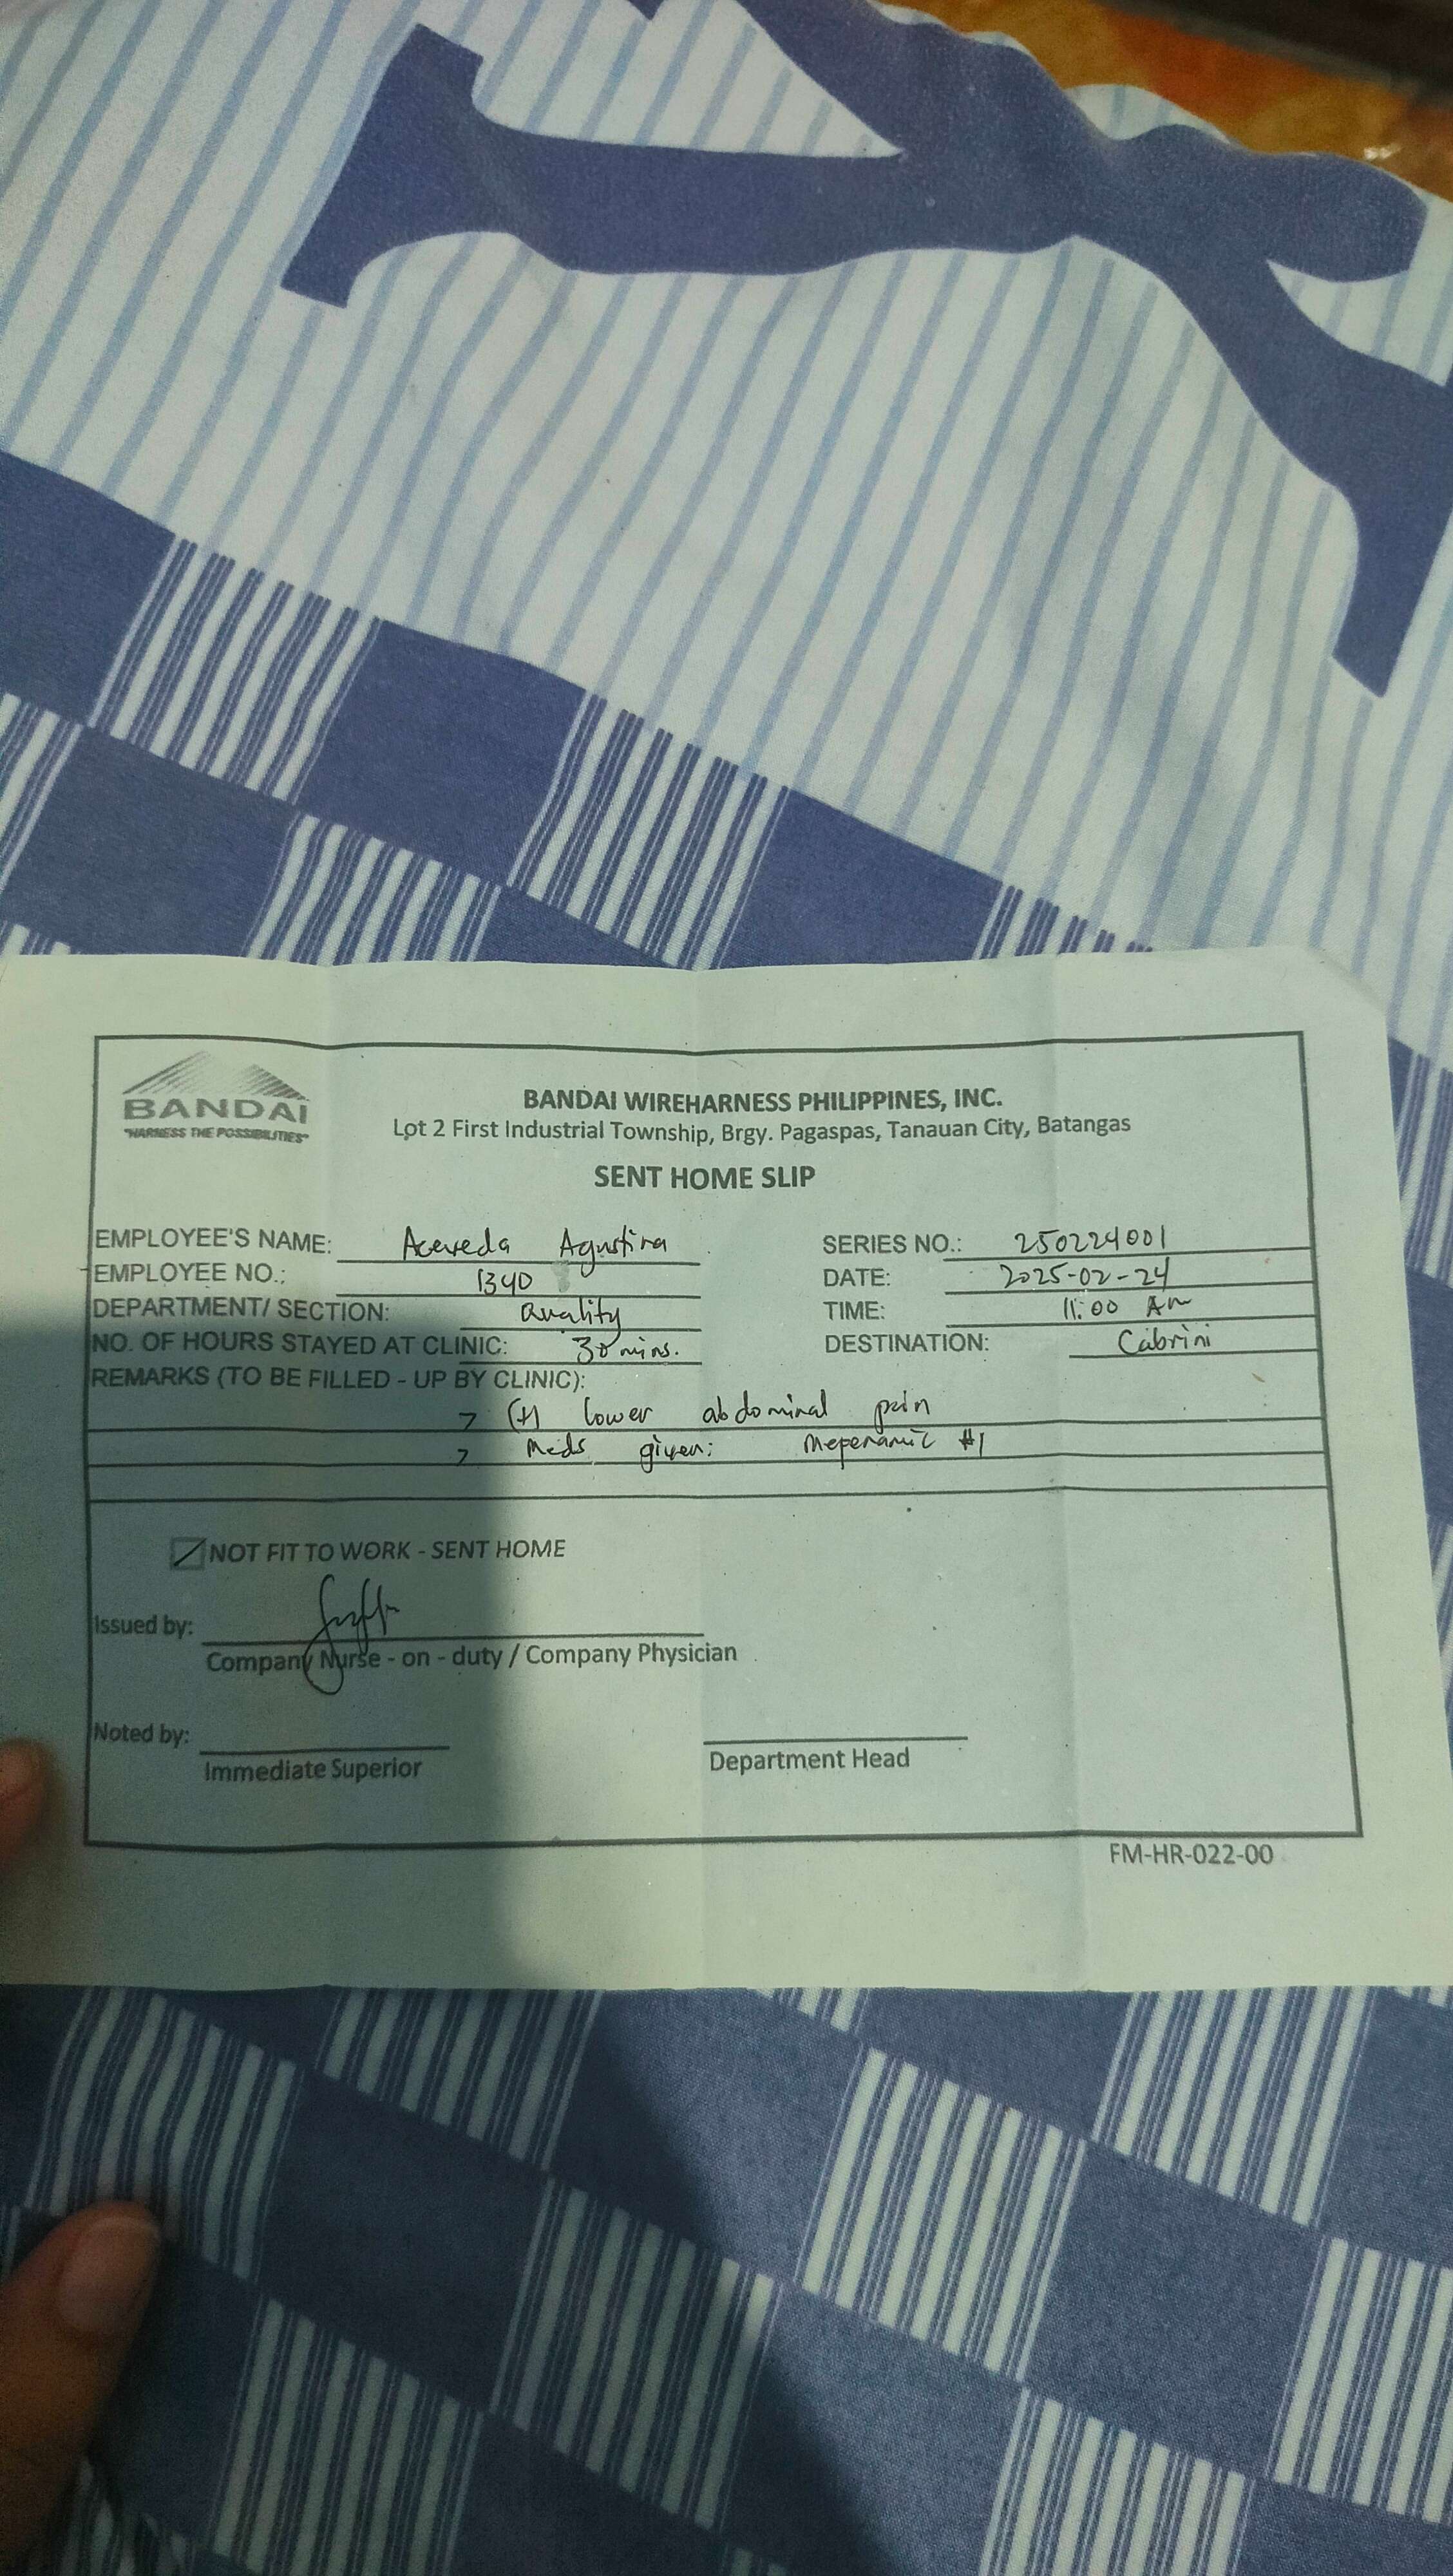 BANDAI
"HARNESS THE POSSIBILITIES"
BANDAI WIREHARNESS PHILIPPINES, INC.
Lot 2 First Industrial Township, Brgy. Pagaspas, Tanauan City, Batangas
SENT HOME SLIP
EMPLOYEE'S NAME: Aceveda Agustina SERIES NO.: 250224001
EMPLOYEE NO.: 1340 DATE: 2025-02-24
DEPARTMENT/ SECTION: Quality TIME: 11:00 Am
NO. OF HOURS STAYED AT CLINIC: 30 mins. DESTINATION: Cabrini
REMARKS (TO BE FILLED - UP BY CLINIC):
> (+) lower abdominal pain
> Meds given: Mepenamic #1
NOT FIT TO WORK - SENT HOME
Issued by:
Company Nurse - on - duty / Company Physician
Noted by:
Immediate Superior Department Head
FM-HR-022-00